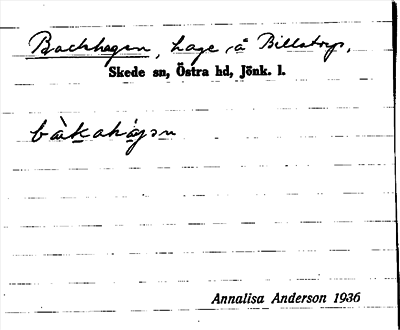 Backhagen, hage å Billstorp,
Skede sn, Östra hd, Jönk. l.
bàkahágən
Annalisa Anderson 1936